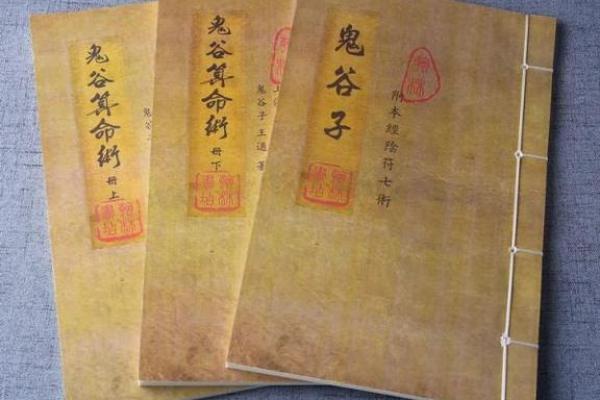 鬼谷子
附本經陰符七術
鬼谷算命術
冊下
鬼谷子王通著
鬼谷算命術
冊上
鬼谷